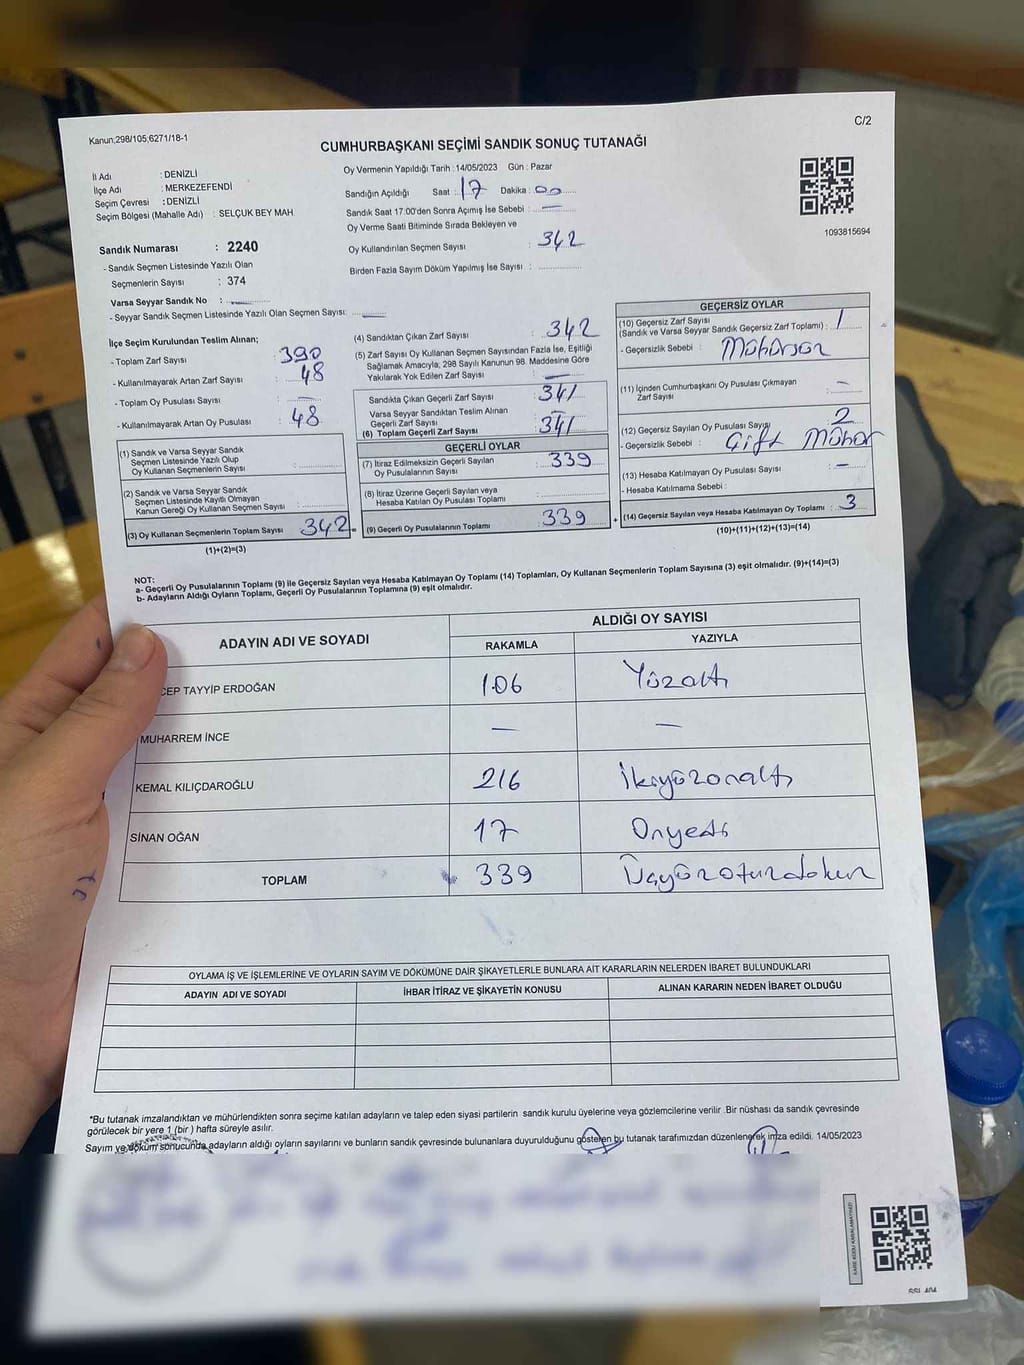 Kanun,298/105;6271/18-1
C/2
CUMHURBAŞKANI SEÇİMİ SANDIK SONUÇ TUTANAĞI
İl Adı : DENİZLİ
İlçe Adı : MERKEZEFENDİ
Seçim Çevresi : DENİZLİ
Seçim Bölgesi (Mahalle Adı) : SELÇUK BEY MAH.
Sandık Numarası : 2240
- Sandık Seçmen Listesinde Yazılı Olan
Seçmenlerin Sayısı : 374
Varsa Seyyar Sandık No :
- Seyyar Sandık Seçmen Listesinde Yazılı Olan Seçmen Sayısı:
Oy Vermenin Yapıldığı Tarih : 14/05/2023 Gün : Pazar
Sandığın Açıldığı Saat : 17 Dakika : 00
Sandık Saat 17:00'den Sonra Açımış İse Sebebi : —
Oy Verme Saati Bitiminde Sırada Bekleyen ve
Oy Kullandırılan Seçmen Sayısı : 342
Birden Fazla Sayım Döküm Yapılmış İse Sayısı :
1093815694
İlçe Seçim Kurulundan Teslim Alınan;
- Toplam Zarf Sayısı : 390
- Kullanılmayarak Artan Zarf Sayısı : 48
- Toplam Oy Pusulası Sayısı : —
- Kullanılmayarak Artan Oy Pusulası : 48
(1) Sandık ve Varsa Seyyar Sandık
Seçmen Listesinde Yazılı Olup
Oy Kullanan Seçmenlerin Sayısı :
(2) Sandık ve Varsa Seyyar Sandık
Seçmen Listesinde Kayıtlı Olmayan
Kanun Gereği Oy Kullanan Seçmen Sayısı :
(3) Oy Kullanan Seçmenlerin Toplam Sayısı : 342 =
(1)+(2)=(3)
(4) Sandıktan Çıkan Zarf Sayısı : 342
(5) Zarf Sayısı Oy Kullanan Seçmen Sayısından Fazla İse, Eşitliği
Sağlamak Amacıyla, 298 Sayılı Kanunun 98. Maddesine Göre
Yakılarak Yok Edilen Zarf Sayısı : —
Sandıkta Çıkan Geçerli Zarf Sayısı : 341
Varsa Seyyar Sandıktan Teslim Alınan
Geçerli Zarf Sayısı : —
(6) Toplam Geçerli Zarf Sayısı : 341
GEÇERLİ OYLAR
(7) İtiraz Edilmeksizin Geçerli Sayılan
Oy Pusulalarının Sayısı : 339
(8) İtiraz Üzerine Geçerli Sayılan veya
Hesaba Katılan Oy Pusulası Toplamı :
(9) Geçerli Oy Pusulalarının Toplamı : 339 +
GEÇERSİZ OYLAR
(10) Geçersiz Zarf Sayısı
(Sandık ve Varsa Seyyar Sandık Geçersiz Zarf Toplamı) : 1
- Geçersizlik Sebebi : Mühürsüz
(11) İçinden Cumhurbaşkanı Oy Pusulası Çıkmayan
Zarf Sayısı : —
(12) Geçersiz Sayılan Oy Pusulası Sayısı : 2
- Geçersizlik Sebebi : Çift Mühür
(13) Hesaba Katılmayan Oy Pusulası Sayısı : —
- Hesaba Katılmama Sebebi :
(14) Geçersiz Sayılan veya Hesaba Katılmayan Oy Toplamı : 3
(10)+(11)+(12)+(13)=(14)
NOT:
a- Geçerli Oy Pusulalarının Toplamı (9) ile Geçersiz Sayılan veya Hesaba Katılmayan Oy Toplamı (14) Toplamları, Oy Kullanan Seçmenlerin Toplam Sayısına (3) eşit olmalıdır. (9)+(14)=(3)
b- Adayların Aldığı Oyların Toplamı, Geçerli Oy Pusulalarının Toplamına (9) eşit olmalıdır.
ADAYIN ADI VE SOYADI
ALDIĞI OY SAYISI
RAKAMLA YAZIYLA
CEP TAYYİP ERDOĞAN 106 Yüzaltı
MUHARREM İNCE — —
KEMAL KILIÇDAROĞLU 216 İkiyüzonaltı
SİNAN OĞAN 17 Onyedi
TOPLAM 339 Üçyüzotuzdokuz
OYLAMA İŞ VE İŞLEMLERİNE VE OYLARIN SAYIM VE DÖKÜMÜNE DAİR ŞİKAYETLERLE BUNLARA AİT KARARLARIN NELERDEN İBARET BULUNDUKLARI
ADAYIN ADI VE SOYADI İHBAR İTİRAZ VE ŞİKAYETİN KONUSU ALINAN KARARIN NEDEN İBARET OLDUĞU
*Bu tutanak imzalandıktan ve mühürlendikten sonra seçime katılan adayların ve talep eden siyasi partilerin sandık kurulu üyelerine veya gözlemcilerine verilir .Bir nüshası da sandık çevresinde
görülecek bir yere 1 (bir ) hafta süreyle asılır.
Sayım ve döküm sonucunda adayların aldığı oyların sayılarını ve bunların sandık çevresinde bulunanlara duyurulduğunu gösteren bu tutanak tarafımızdan düzenlenerek imza edildi. 14/05/2023
KARE KODU KARALAMAYINIZ!